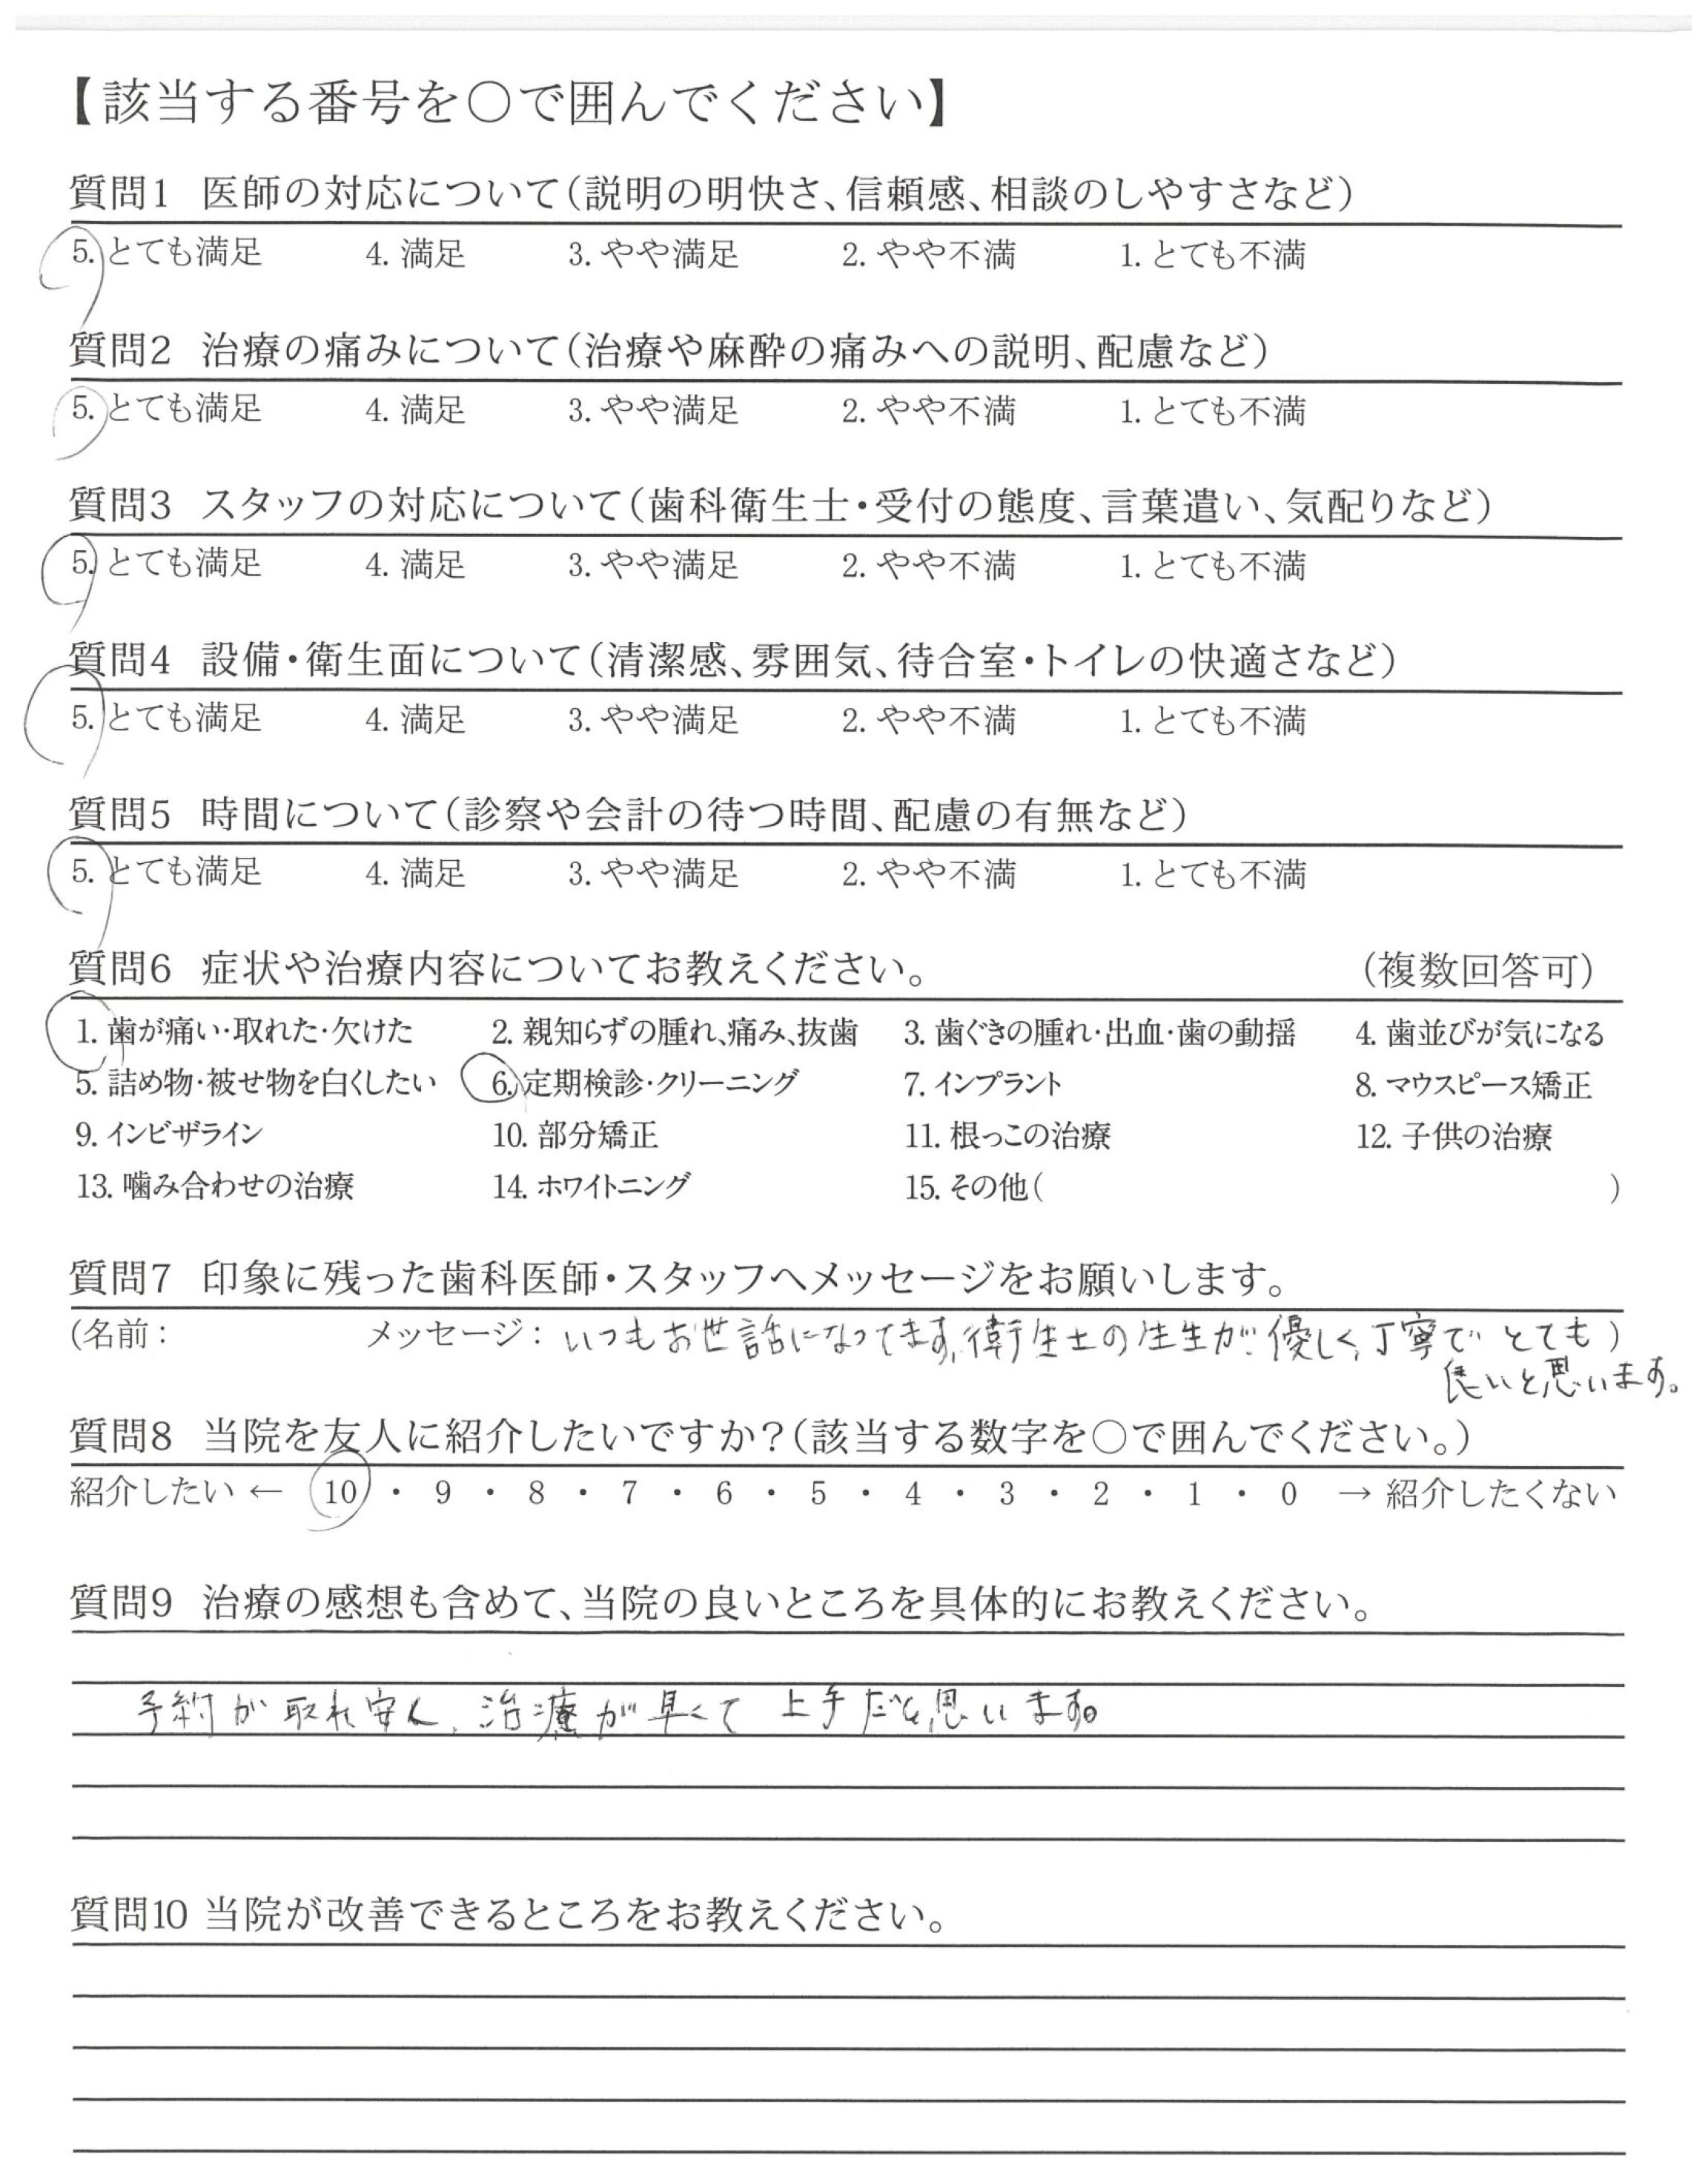 【該当する番号を○で囲んでください】
質問1 医師の対応について(説明の明快さ、信頼感、相談のしやすさなど)
5. とても満足 4. 満足 3. やや満足 2. やや不満 1. とても不満
質問2 治療の痛みについて(治療や麻酔の痛みへの説明、配慮など)
5. とても満足 4. 満足 3. やや満足 2. やや不満 1. とても不満
質問3 スタッフの対応について(歯科衛生士・受付の態度、言葉遣い、気配りなど)
5. とても満足 4. 満足 3. やや満足 2. やや不満 1. とても不満
質問4 設備・衛生面について(清潔感、雰囲気、待合室・トイレの快適さなど)
5. とても満足 4. 満足 3. やや満足 2. やや不満 1. とても不満
質問5 時間について(診察や会計の待つ時間、配慮の有無など)
5. とても満足 4. 満足 3. やや満足 2. やや不満 1. とても不満
質問6 症状や治療内容についてお教えください。 (複数回答可)
1. 歯が痛い・取れた・欠けた 2. 親知らずの腫れ、痛み、抜歯 3. 歯ぐきの腫れ・出血・歯の動揺 4. 歯並びが気になる
5. 詰め物・被せ物を白くしたい 6. 定期検診・クリーニング 7. インプラント 8. マウスピース矯正
9. インビザライン 10. 部分矯正 11. 根っこの治療 12. 子供の治療
13. 噛み合わせの治療 14. ホワイトニング 15. その他( )
質問7 印象に残った歯科医師・スタッフへメッセージをお願いします。
(名前: メッセージ: いつもお世話になってます。衛生士の先生が優しく、丁寧でとても )
良いと思います。
質問8 当院を友人に紹介したいですか?(該当する数字を○で囲んでください。)
紹介したい ← 10 ・ 9 ・ 8 ・ 7 ・ 6 ・ 5 ・ 4 ・ 3 ・ 2 ・ 1 ・ 0 → 紹介したくない
質問9 治療の感想も含めて、当院の良いところを具体的にお教えください。
予約が取れ安く、治療が早くて 上手だと思います。
質問10 当院が改善できるところをお教えください。